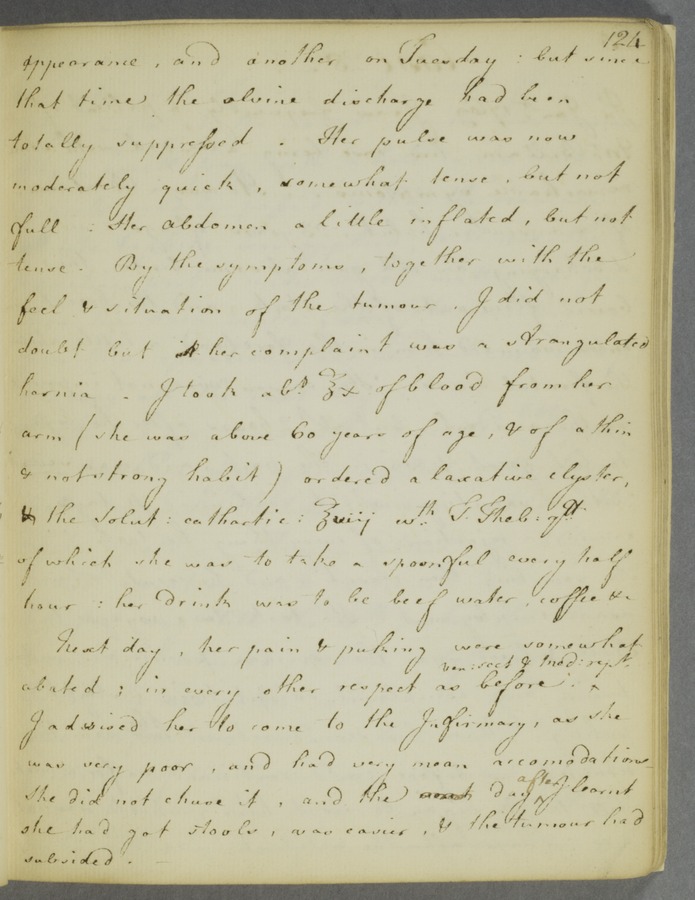 124
appearance, and another on Tuesday : but since
that time the alvine discharge had been
totally suppressed . Her pulse was now
moderately quick, somewhat tense, but not
full : Her abdomen a little inflated, but not
tense. By the symptoms, together with the
feel & situation of the tumour, I did not
doubt but her complaint was a strangulated
hernia . I took abt. ℥x of blood from her
arm (she was above 60 years of age, & of a thin
& not strong habit) ordered a laxative clyster,
& the Solut: cathartic: ℥viij wth. T. Theb: gtt
of which she was to take a spoonful every half
hour : her Drink was to be beef water, coffee &c
Next day, her pain & puking were somewhat
ven: sect & Mod: rept.
abated ; in every other respect as before . ^
I advised her to come to the Infirmary, as she
was very poor, and had very mean accomodations
after
she did not chuse it, and the day ^ I learnt
she had got stools, was easier, & the tumour had
subsided . —